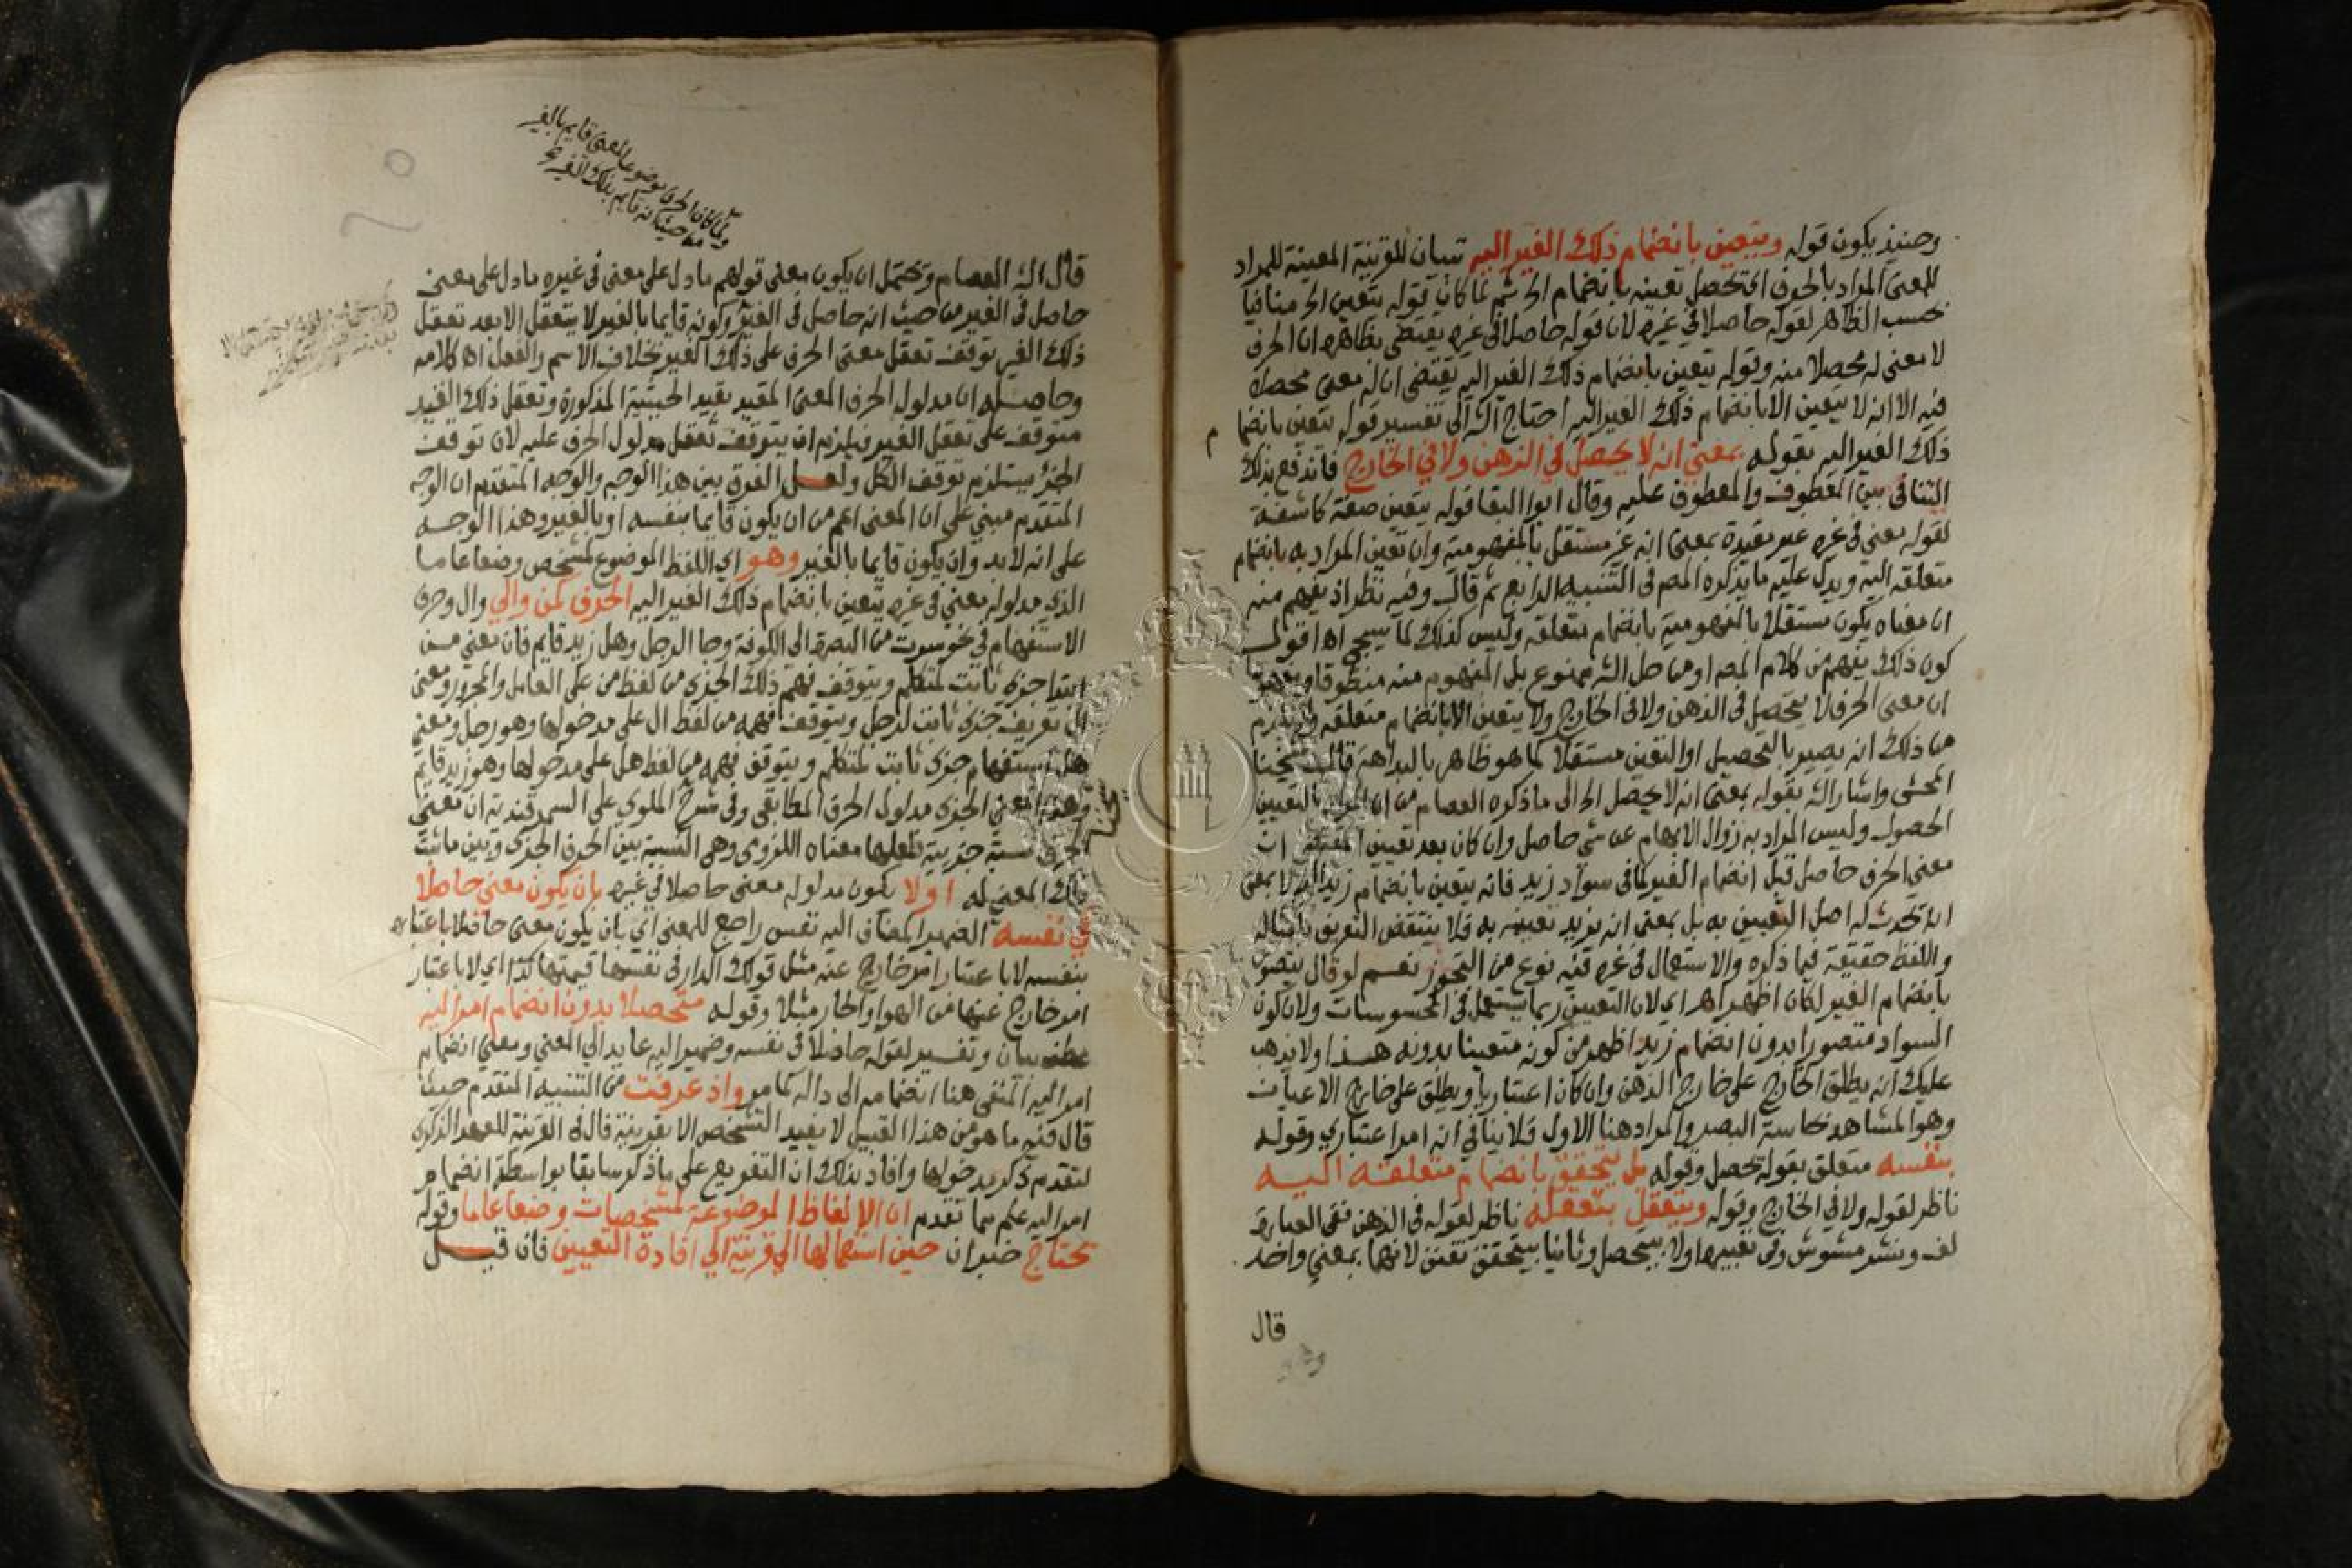 وحينئذ يكون قوله ويتعين بانضمام ذلك الغير اليه تبيان للقرينة المعينة للمراد
للمعنى المراد بالحرف اي تحصل تعينه بانضمام الخ ثم لما كان قوله يتعين الخ منافيا
بحسب الظاهر لقوله حاصلا في غيره لان قوله حاصلا في غيره يقتضي بظاهره ان الحرف
لا معنى له محصلا منه وقوله يتعين بانضمام ذلك الغير اليه يقتضي ان له معنى محصلا
فيه الا انه لا يتعين الا بانضمام ذلك الغير اليه احتاج الش الى تفسير قوله يتعين بانضما م
ذلك الغير اليه بقوله بمعنى انه لا يحصل في الذهن ولا في الخارج فاندفع بذلك
التنافي بين المعطوف والمعطوف عليه وقال ابوا البقا قوله يتعين صفة كاشفة
لقوله معنى في غيره غير مقيدة بمعنى انه غير مستقل بالمفهومية وان تعين المراد به بانضمام
متعلقه اليه ويدل عليه ما يذكره المص في التنبيه الرابع ثم قال وفيه نظر اذ يفهم منه
ان معناه يكون مستقلا بالمفهومية بانضمام متعلقه وليس كذلك لما سيجي اه اقول
كون ذلك يفهم من كلام المص او من حل الش ممنوع بل المفهوم منه منطوقا ومفهوما
ان معنى الحرف لا يتحصل في الذهن ولا في الخارج ولا يتعين الا بانضمام متعلقه ولا يلزم
من ذلك انه يصير بالتحصيل او التعين مستقلا كما هو ظاهر بالبداهة قال شيخنا
المحشى واشار الش بقوله بمعنى انه لا يحصل الخ الى ما ذكره العصام من ان المراد بالتعيين
الحصول وليس المراد به زوال الابهام عن شي حاصل وان كان بعد تعيين المعينة ان
معنى الحرف حاصل قبل انضمام الغير كما في سواد زيد فانه يتعين بانضمام زيد اليه لا بمعنى
انه تحدث له اصل التعيين به بل بمعنى انه يزيد تعيينه به فلا ينتقض التعريف بامثاله
واللفظ حقيقة فيما ذكره والاستعمال في غيره فيه نوع من التجوز نعم لو قال يتصور
بانضمام الغير لكان اظهر اهـ اي لان التعيين ربما يستعمل في المحسوسات ولان كون
السواد متصورا بدون انضمام زيد اظهر من كونه متعينا بدونه هذا ولا يذهب
عليك انه يطلق الخارج على خارج الذهن وان كان اعتباريا ويطلق على خارج الاعيان
وهو المشاهد بحاسة البصر والمراد هنا الاول فلا ينافي انه امر اعتباري وقوله
بنفسه متعلق بقوله تحصل وقوله بل يتحقق بانضمام متعلقه اليه
ناظر لقوله ولا في الخارج وقوله ويتعقل بتعقله ناظر لقوله في الذهن ففي العبارة
لف ونشر مشوش وفي تعبيره اولا بيتحصل وثانيا بيتحقق تفنن لانهما بمعنى واحد
قال
ولما كان الحرف موضوعا لمعنى قايم بالغير
من حيث انه قايم بذلك الغير صح
قال الش العصام وتحتمل ان يكون معنى قولهم ما دل على معنى في غيره ما دل على معنى
حاصل في الغير من حيث انه حاصل في الغير وكونه قايما بالغير لا يتعقل الا بعد تعقل
ذلك الغير توقف تعقل معنى الحرف على ذلك الغير بخلاف الاسم والفعل اه كلامه
وحاصله ان مدلول الحرف المعنى المقيد بقيد الحيثية المذكورة وتعقل ذلك القيد
متوقف على تعقل الغير فيلزم ان يتوقف تعقل مدلول الحرف عليه لان توقف
الجزء يستلزم توقف الكل ولعل الفرق بين هذا الوجه والوجه المتقدم ان الوجه
المتقدم مبني على ان المعنى اعم من ان يكون قايما بنفسه او بالغير وهذا الوجه
على انه لا بد وان يكون قايما بالغير وهو اي اللفظ الموضوع لمشخص وضعا عاما
الذي مدلوله معنى في غيره يتعين بانضمام ذلك الغير اليه الحرف كمن والى وال وحرف
الاستفهام في نحو سرت من البصرة الى الكوفة وجا الرجل وهل زيد قايم فان معنى من
ابتدا جزى ثابت لمتكلم ويتوقف فهم ذلك الجزى من لفظ من على العامل والمجرور ومعنى
ال تعريف جزى ثابت لرجل ويتوقف فهمه من لفظ ال على مدخولها وهو رجل ومعنى
هل استفهام جزى ثابت لمتكلم ويتوقف فهمه من لفظ هل على مدخولها وهو زيد قايم
وهذا المعنى الجزى مدلول الحرف المطابقي وفي شرح الملوي على السمرقندية ان معنى
الحرف نسبة جزئية ولعلها معناه اللزومى وهي النسبة بين الحرف الجزى وبين ما ثبت
ذلك المعنى له اولا يكون مدلوله معنى حاصلا في غيره بان يكون معنى حاصلا
في نفسه الضمير المضاف اليه نفس راجع للمعنى اي بان يكون معنى حاصلا باعتباره
بنفسه لا باعتبار امر خارج عنه مثل قولك الدار في نفسها قيمتها كذا اي لا باعتبار
امر خارج عنها من الهوا والجار مثلا وقوله متحصلا بدون انضمام امر اليه
عطف بيان وتفسير لقوله حاصلا في نفسه وضمير اليه عايد الى المعنى ومعنى انضمام
امر اليه المنفى هنا انضمامه الى داله كما مر واذ عرفت من التنبيه المتقدم حيث
قال فيه ما هو من هذا القبيل لا يفيد التشخص الا بقرينة قال في القرينة للعهد الذكرى
لتقدم ذكر مدخولها وافاد بذلك ان التفريع على ما ذكر سابقا بواسطة انضمام
امر اليه علم مما تقدم ان الالفاظ الموضوعة لمشخصات وضعا عاما وقوله
تحتاج خبر ان حين استعمالها الى قرينة اي افادة التعيين فان قيل